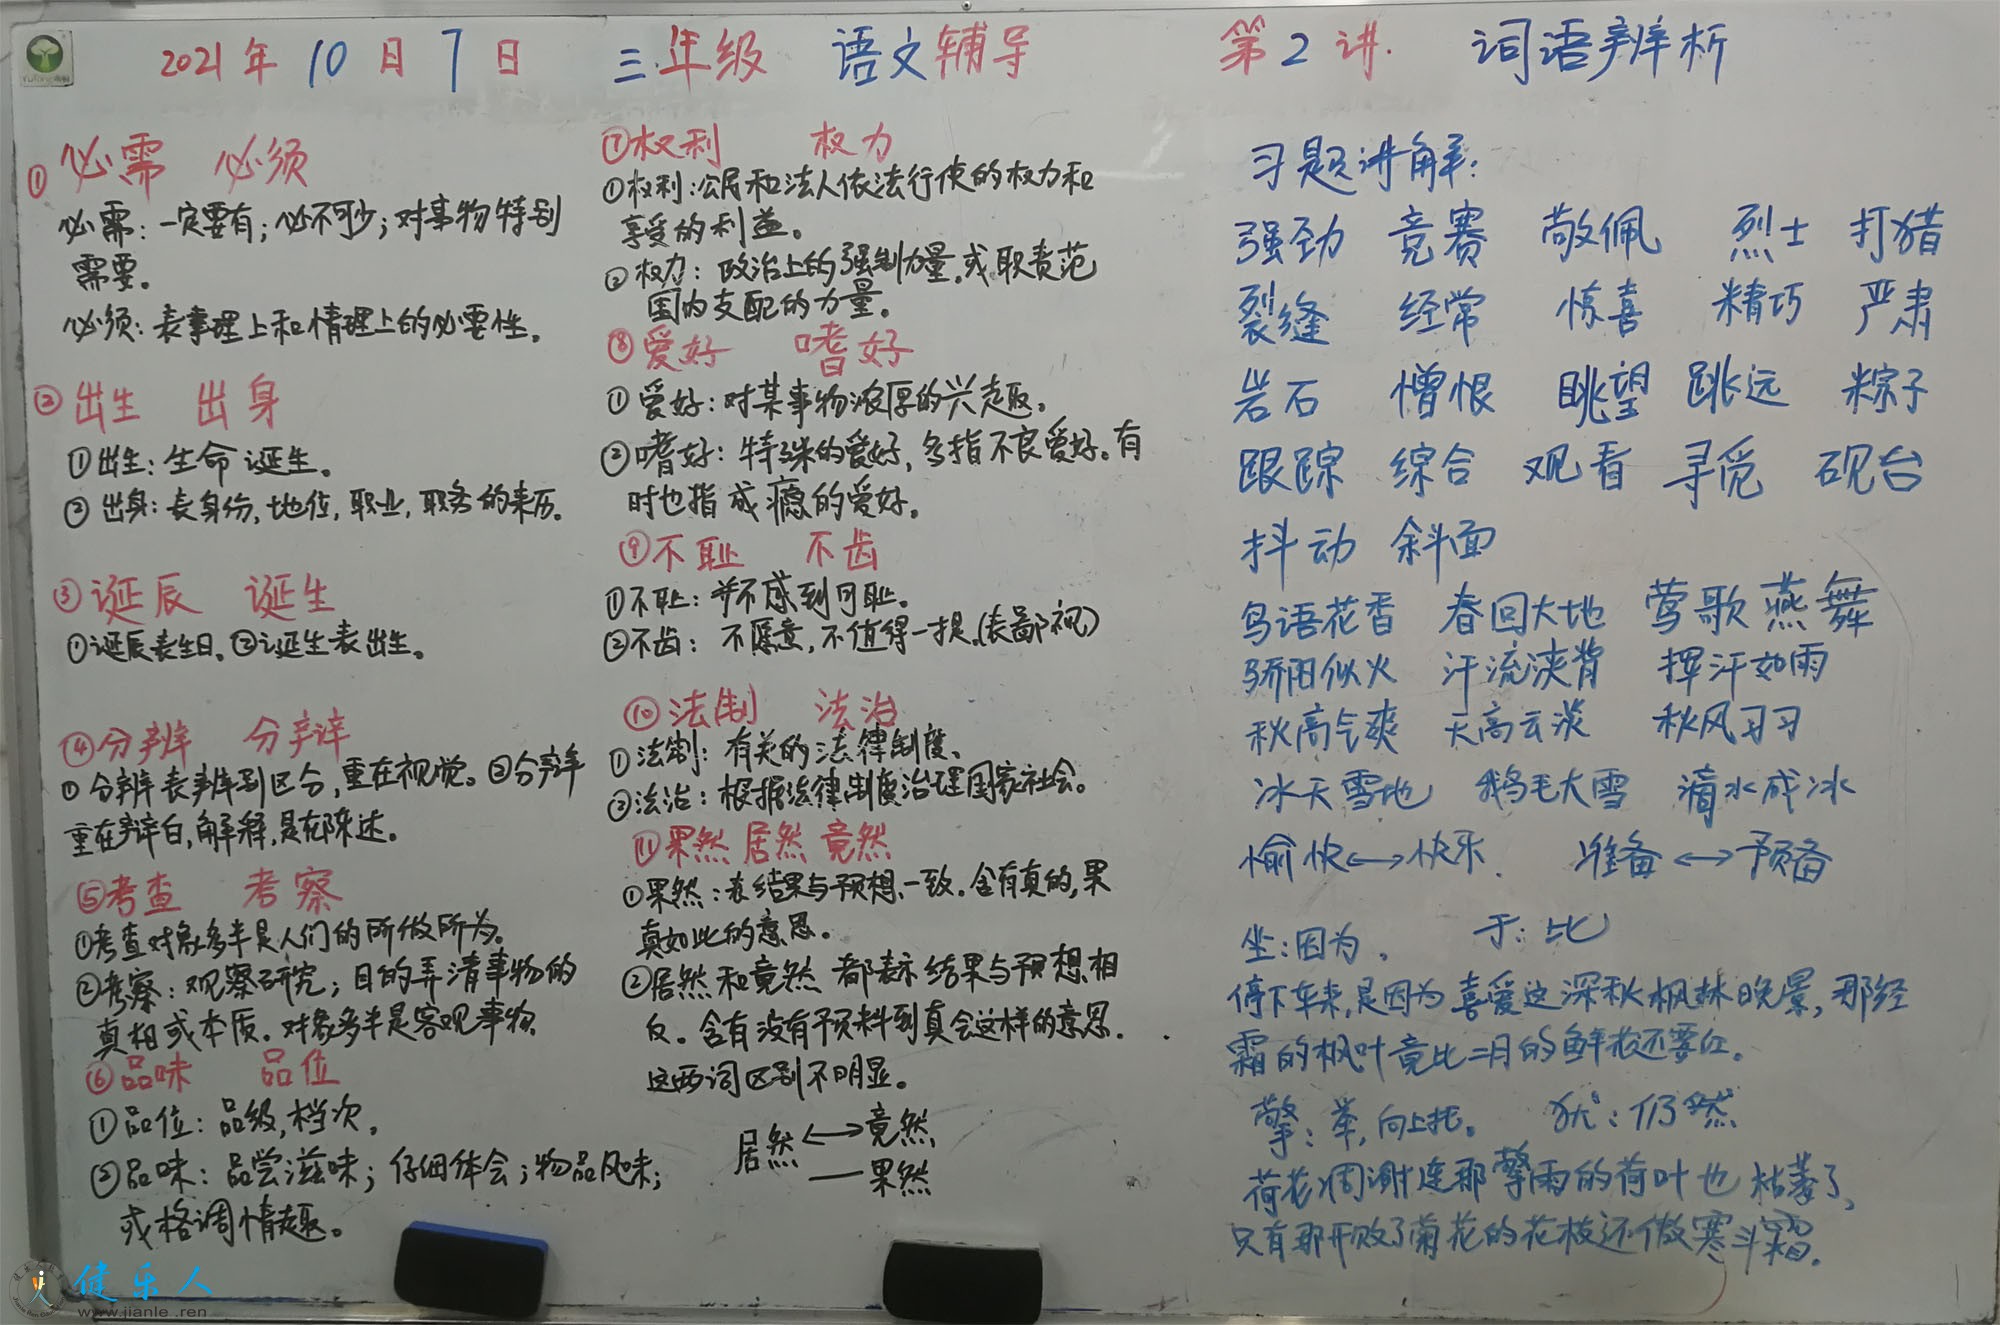 2021年 10月7日 三年级 语文辅导 第2讲. 词语辨析
① 必需 必须
必需：一定要有；必不可少；对事物特别
需要。
必须：表事理上和情理上的必要性。
② 出生 出身
①出生：生命诞生。
②出身：表身份，地位，职业，职务的来历。
③ 诞辰 诞生
①诞辰表生日。②诞生表出生。
④分辨 分辩
①分辨表辨别区分，重在视觉。②分辩
重在辩白，解释，是在陈述。
⑤考查 考察
①考查对象多半是人们的所做所为。
②考察：观察研究；目的弄清事物的
真相或本质。对象多半是客观事物
⑥品味 品位
①品位：品级，档次。
②品味：品尝滋味；仔细体会；物品风味；
或格调情趣。
⑦权利 权力
①权利：公民和法人依法行使的权力和
享受的利益。
②权力：政治上的强制力量，或职责范
围内支配的力量。
⑧爱好 嗜好
①爱好：对某事物浓厚的兴趣。
②嗜好：特殊的爱好，多指不良爱好。有
时也指成瘾的爱好。
⑨不耻 不齿
①不耻：并不感到可耻。
②不齿：不愿意，不值得一提。(表鄙视)
⑩法制 法治
①法制：有关的法律制度。
②法治：根据法律制度治理国家社会。
⑪果然 居然 竟然
①果然：表结果与预想一致。含有真的，果
真如此的意思。
②居然和竟然都表示结果与预想相
反。含有没有预料到真会这样的意思.
这两词区别不明显。
居然⟷竟然
—果然
习题讲解：
强劲 竞赛 敬佩 烈士 打猎
裂缝 经常 惊喜 精巧 严肃
岩石 憎恨 眺望 跳远 粽子
跟踪 综合 观看 寻觅 砚台
抖动 斜面
鸟语花香 春回大地 莺歌燕舞
骄阳似火 汗流浃背 挥汗如雨
秋高气爽 天高云淡 秋风习习
冰天雪地 鹅毛大雪 滴水成冰
愉快⟷快乐. 准备⟷预备
坐：因为. 于：比
停下车来，是因为喜爱这深秋枫林晚景，那经
霜的枫叶竟比二月的鲜花还要红。
擎：举，向上托。 犹：仍然
荷花凋谢连那擎雨的荷叶也枯萎了，
只有那开败了菊花的花枝还傲寒斗霜。
健乐人
www.jianle.ren